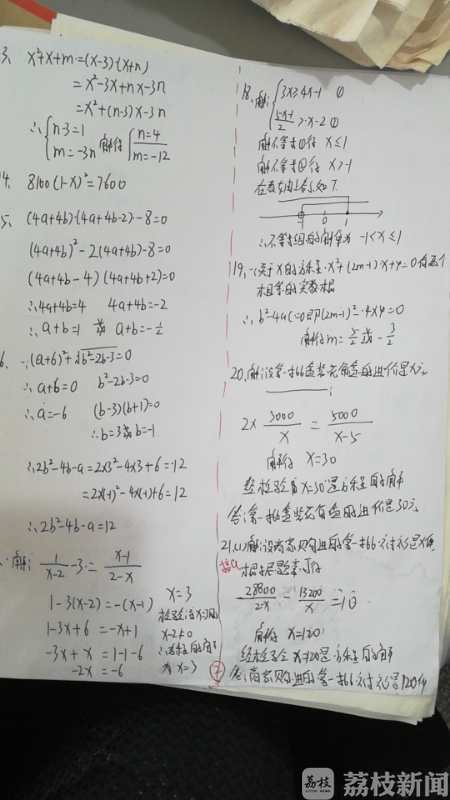 3. x²+x+m=(x-3)(x+n)
=x²-3x+nx-3n
=x²+(n-3)x-3n
∴{n-3=1
m=-3n 解得{n=4
m=-12
4. 8100(1-x)²=7600
5. (4a+4b)(4a+4b-2)-8=0
(4a+4b)²-2(4a+4b)-8=0
(4a+4b-4)(4a+4b+2)=0
∴4a+4b=4 4a+4b=-2
∴a+b=1 或 a+b=-1/2
6. ∵(a+6)²+√b²-2b-3=0
∴a+6=0 b²-2b-3=0
∴a=-6 (b-3)(b+1)=0
∴b=3或b=-1
∴2b²-4b-a=2×3²-4×3+6=12
=2×(-1)²-4×(-1)+6=12
∴2b²-4b-a=12
解: 1/x-2 -3= x-1/2-x
1-3(x-2)=-(x-1)
1-3x+6=-x+1
-3x+x=1-1-6
-2x=-6
x=3
x-2≠0
x=3
18. 解:{3x≥4x-1 ①
5x-1/2>x-2 ②
解不等式①得 x≤1
解不等式②得 x>-1
-1 0 1
∴不等式组的解集为 -1<x≤1
19. ∵关于x的方程x²+(2m-1)x+4=0有两个
相等的实数根
∴b²-4ac=0即(2m-1)²-4×4=0
解得m=5/2或-3/2
20. 解:设第一批盒装花每盒的进价是x元
2× 3000/x = 5000/x-5
解得 x=30
经检验当x=30是方程的解
答:第一批盒装花每盒的进价是30元
21.(1)解:设商家购进的第一批衬衫是x件
根据题意可得
28800/2x - 13200/x =10
解得 x=120
经检验 x=120是方程的解
答:商家购进的第一批衬衫是120件
7
荔枝
荔枝新闻